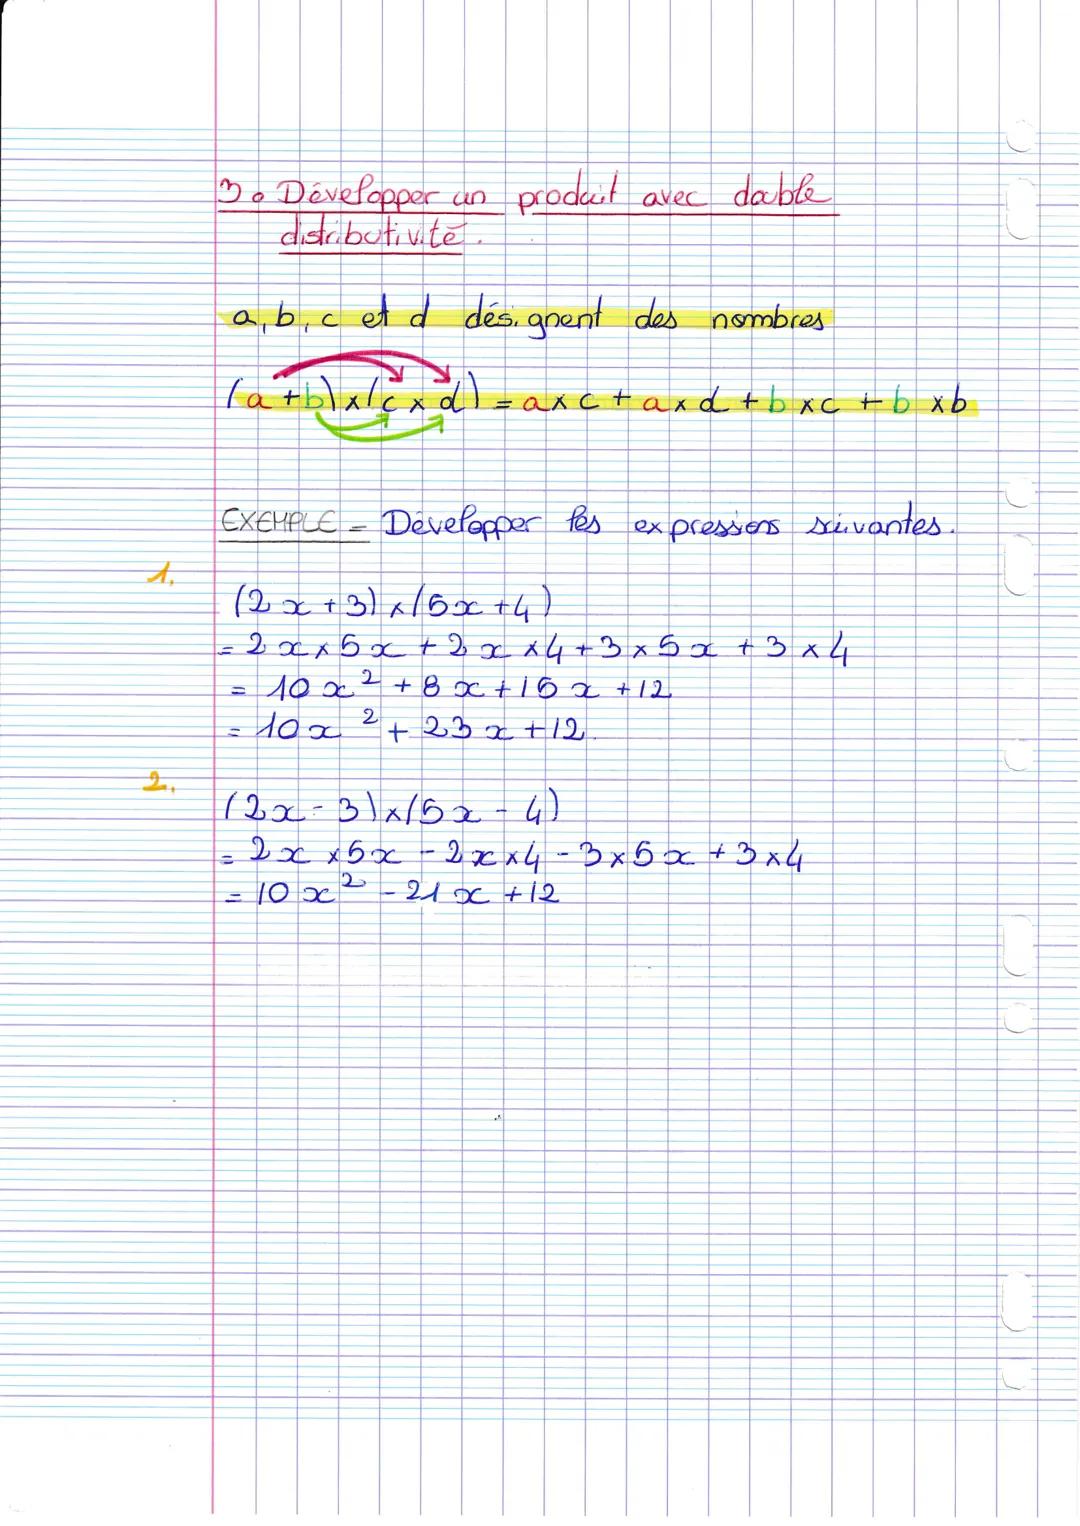 3. Développer un produit avec double
distributivité.
a, b, c et d désignent des nombres
(a+b)x(c x d) = a x c + a x d + b x c + b x b
EXEMPLE - Développer les expressions suivantes.
1.
(2x+3)x(5x+4)
= 2x x 5x + 2x x 4 + 3 x 5x + 3 x 4
= 10x² + 8x + 15x + 12
= 10x² + 23x + 12.
2.
(2x-3)x(5x-4)
= 2x x 5x - 2x x 4 - 3 x 5x + 3 x 4
= 10x² - 21x + 12